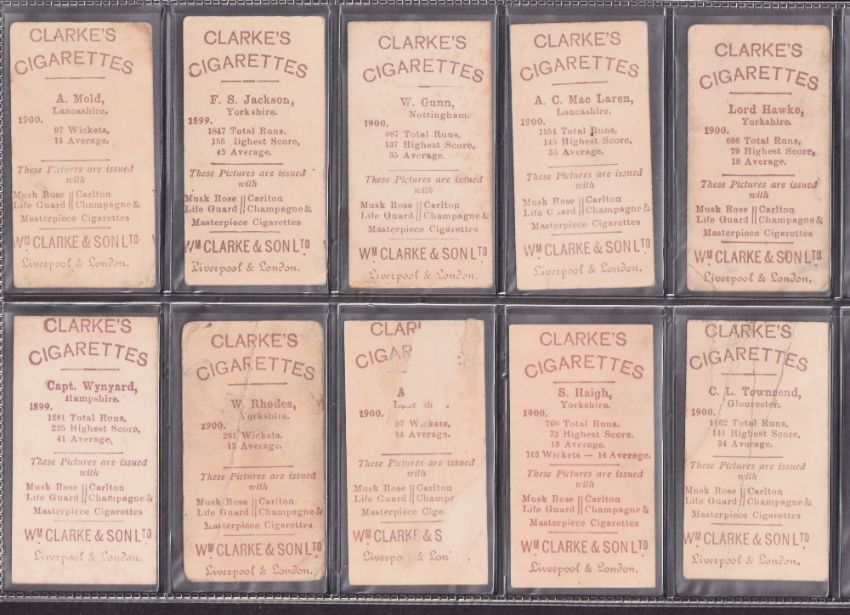 CLARKE'S
CIGARETTES
A. Mold,
Lancashire.
1900.
97 Wickets.
14 Average.
These Pictures are issued
with
Musk Rose || Carlton
Life Guard || Champagne &
Masterpiece Cigarettes
WM CLARKE & SON LTD
Liverpool & London.
CLARKE'S
CIGARETTES
F. S. Jackson,
Yorkshire.
1899.
1847 Total Runs,
155 Highest Score,
45 Average.
These Pictures are issued
with
Musk Rose || Carlton
Life Guard || Champagne &
Masterpiece Cigarettes
WM CLARKE & SON LTD
Liverpool & London.
CLARKE'S
CIGARETTES
W. Gunn,
Nottingham.
1900.
887 Total Runs,
137 Highest Score,
35 Average.
These Pictures are issued
with
Musk Rose || Carlton
Life Guard || Champagne &
Masterpiece Cigarettes
WM CLARKE & SON LTD
Liverpool & London.
CLARKE'S
CIGARETTES
A. C. Mac Laren,
Lancashire.
1900.
1554 Total Runs,
145 Highest Score,
35 Average.
These Pictures are issued
with
Musk Rose || Carlton
Life G ard || Champagne &
Masterpiece Cigarettes
WM CLARKE & SON LTD
Liverpool & London.
CLARKE'S
CIGARETTES
Lord Hawke,
Yorkshire.
1900.
686 Total Runs,
79 Highest Score,
18 Average.
These Pictures are issued
with
Musk Rose || Carlton
Life Guard || Champagne &
Masterpiece Cigarettes
WM CLARKE & SON LTD
Liverpool & London.
CLARKE'S
CIGARETTES
Capt. Wynyard,
Hampshire.
1899.
1281 Total Runs,
225 Highest Score,
41 Average,
These Pictures are issued
with
Musk Rose || Carlton
Life Guard || Champagne &
Masterpiece Cigarettes
WM CLARKE & SON LTD
Liverpool & London.
CLARKE'S
CIGARETTES
W. Rhodes,
Yorkshire.
1900.
261 Wickets.
13 Average.
These Pictures are issued
with
Musk Rose || Carlton
Life Guard || Champagne &
Masterpiece Cigarettes
WM CLARKE & SON LTD
Liverpool & London.
CLAR
CIGAR
A
1900.
97 Wickets,
14 Average.
These Pictures are issued
with
Musk Rose || Carlton
Life Guard || Champ
Masterpiece Ciga
WM CLARKE & S
Liverpo & Lon
CLARKE'S
CIGARETTES
S. Haigh,
Yorkshire.
1900.
760 Total Runs.
73 Highest Score,
19 Average.
163 Wickets — 14 Average.
These Pictures are issued
with
Musk Rose || Carlton
Life Guard || Champagne &
Masterpiece Cigarettes
WM CLARKE & SON LTD
Liverpool & London.
CLARKE'S
CIGARETTES
C. L. Townsend,
Gloucester.
1900.
1662 Total Runs,
141 Highest Score,
34 Average.
These Pictures are issued
with
Musk Rose || Carlton
Life Guard || Champagne &
Masterpiece Cigarettes
WM CLARKE & SON LTD
Liverpool & London.